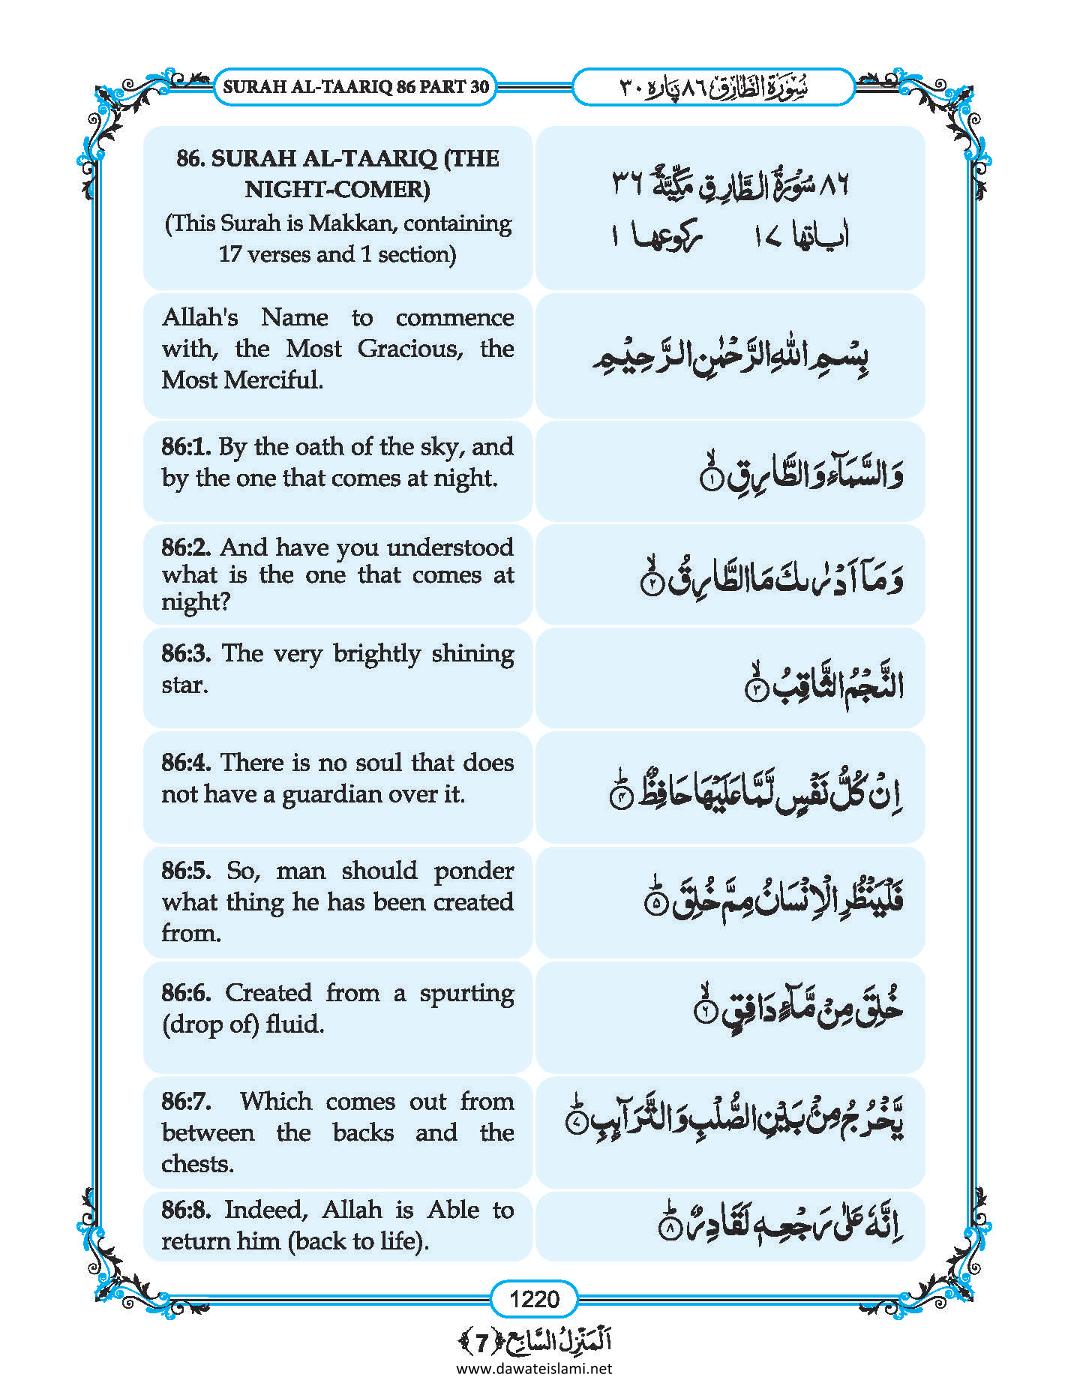 SURAH AL-TAARIQ 86 PART 30
سُوْرَۃُ الطَّارِق ٨٦ پارہ ٣٠
86. SURAH AL-TAARIQ (THE
NIGHT-COMER)
(This Surah is Makkan, containing
17 verses and 1 section)
٨٦ سُوْرَۃُ الطَّارِقِ مَکِّیَّۃٌ ٣٦
اٰیاتھا ١٧ رکوعھا ١
Allah's Name to commence
with, the Most Gracious, the
Most Merciful.
بِسْمِ اللّٰهِ الرَّحْمٰنِ الرَّحِیْمِ
86:1. By the oath of the sky, and
by the one that comes at night.
وَ السَّمَآءِ وَ الطَّارِقِۙ(۱)
86:2. And have you understood
what is the one that comes at
night?
وَ مَاۤ اَدْرٰىكَ مَا الطَّارِقُۙ(۲)
86:3. The very brightly shining
star.
النَّجْمُ الثَّاقِبُۙ(۳)
86:4. There is no soul that does
not have a guardian over it.
اِنْ كُلُّ نَفْسٍ لَّمَّا عَلَیْهَا حَافِظٌؕ(۴)
86:5. So, man should ponder
what thing he has been created
from.
فَلْیَنْظُرِ الْاِنْسَانُ مِمَّ خُلِقَؕ(۵)
86:6. Created from a spurting
(drop of) fluid.
خُلِقَ مِنْ مَّآءٍ دَافِقٍۙ(۶)
86:7. Which comes out from
between the backs and the
chests.
یَّخْرُ جُ مِنْۢ بَیْنِ الصُّلْبِ وَ التَّرَآىٕبِؕ(۷)
86:8. Indeed, Allah is Able to
return him (back to life).
اِنَّهٗ عَلٰى رَجْعِهٖ لَقَادِرٌؕ(۸)
1220
اَلْمَنْزِلُ السَّابِع ﴿7﴾
www.dawateislami.net